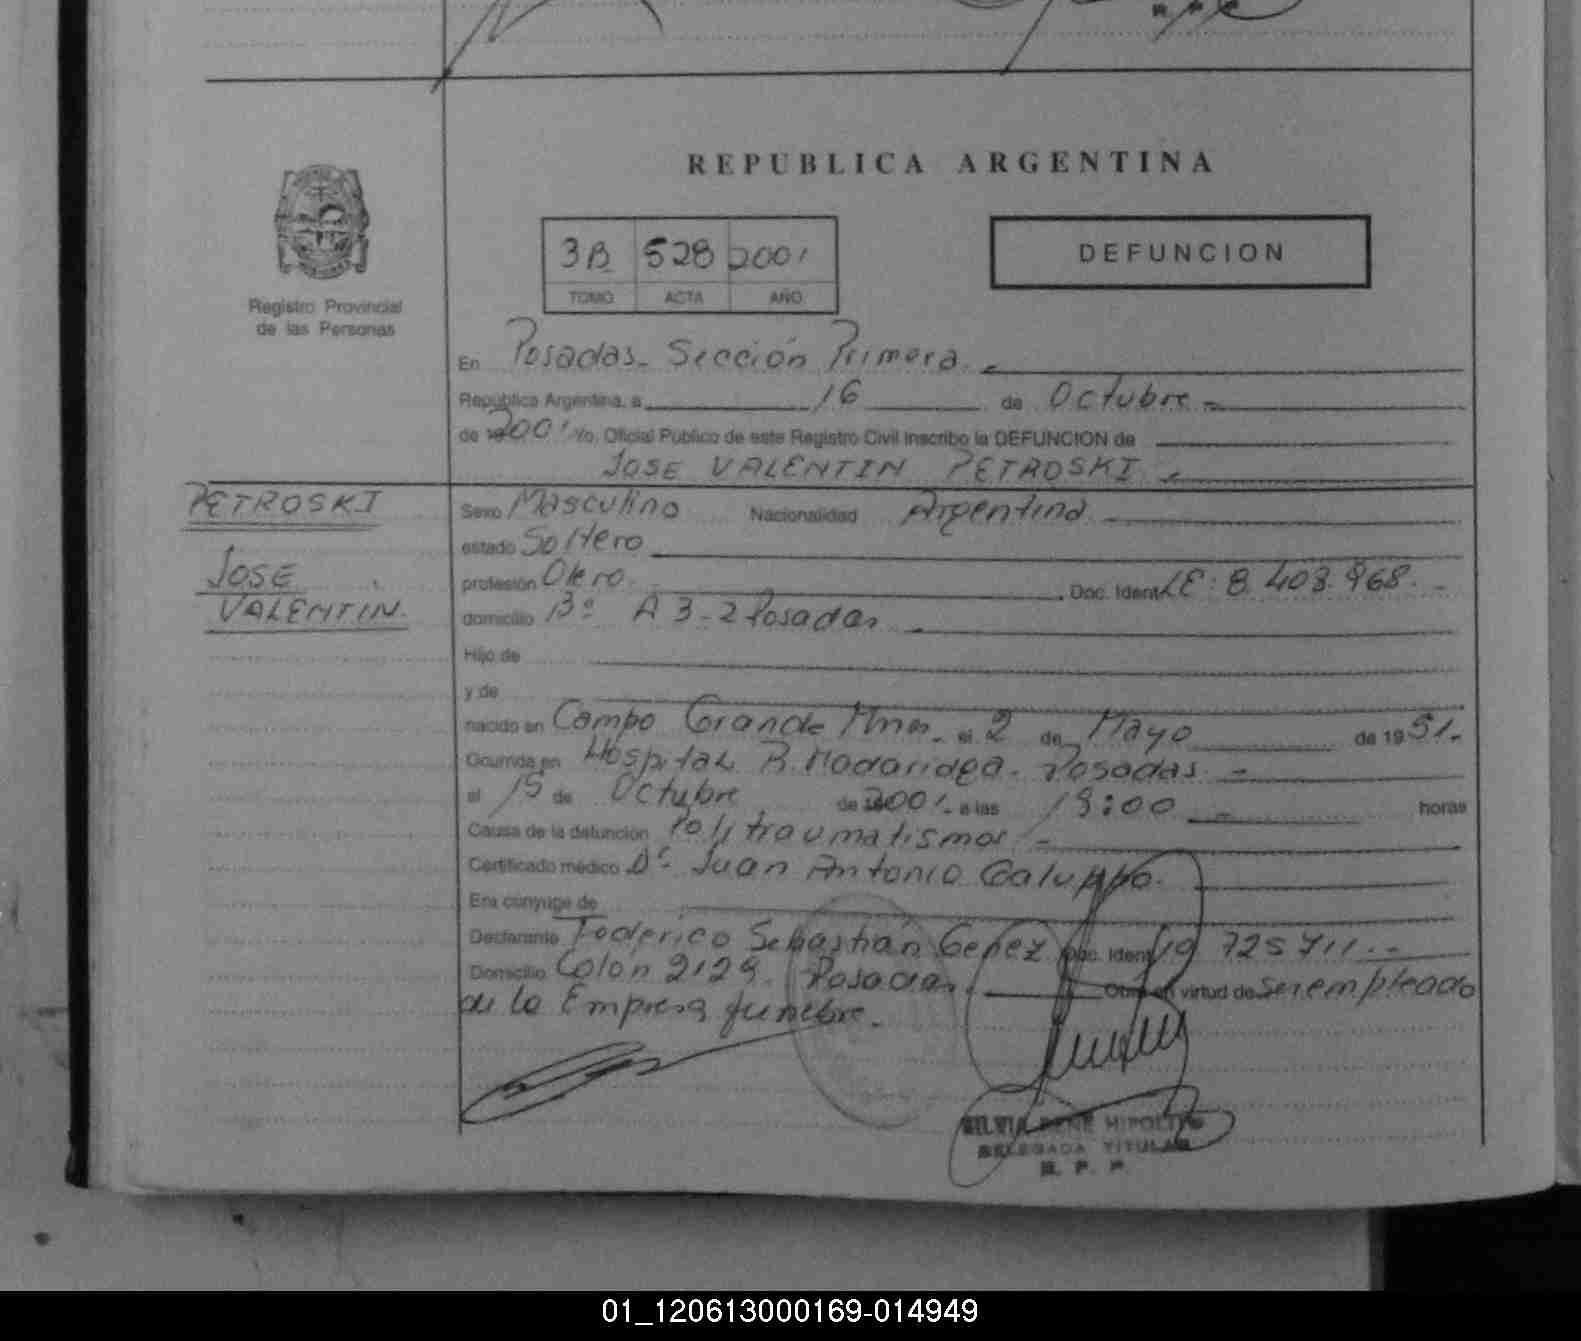 REPUBLICA ARGENTINA
3B 528 2001
TOMO ACTA AÑO
DEFUNCION
Registro Provincial
de las Personas
En Posadas - Sección Primera. -
República Argentina, a 16 de Octubre -
de 2001 Yo, Oficial Público de este Registro Civil inscribo la DEFUNCION de
JOSE VALENTIN PETROSKI. -
PETROSKI
JOSE
VALENTIN.
Sexo Masculino Nacionalidad Argentina. -
estado Soltero
profesión Olero. Doc. Ident. LE: 8.403.968. -
domicilio Bº A 3-2 Posadas
Hijo de
y de
nacido en Campo Grande Mnes. el 2 de Mayo de 1951.-
Ocurrida en Hospital R. Madariaga. Posadas. -
el 15 de Octubre de 2001.- a las 19:00 - horas
Causa de la defunción Politraumatismos -
Certificado médico Dr. Juan Antonio Galuppo.
Era cónyuge de
Declarante Federico Sebastián Genez Doc. Ident. 19 725 711.-
Domicilio Colon 2129. Posadas. Obra en virtud de ser empleado
de la Empresa funebre.
SILVIA RENE HIPOLITO
DELEGADA TITULAR
R. P. P.
01_120613000169-014949